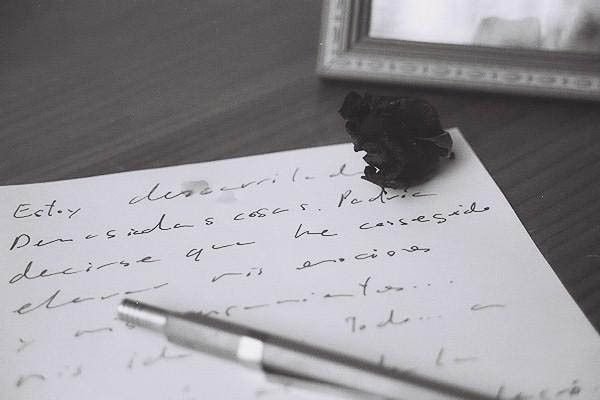 Estoy descarrilado
Demasiadas cosas. Podría
decirse que he conseguido
elevar mis emociones
y mis pensamientos...
Todo... a
mis